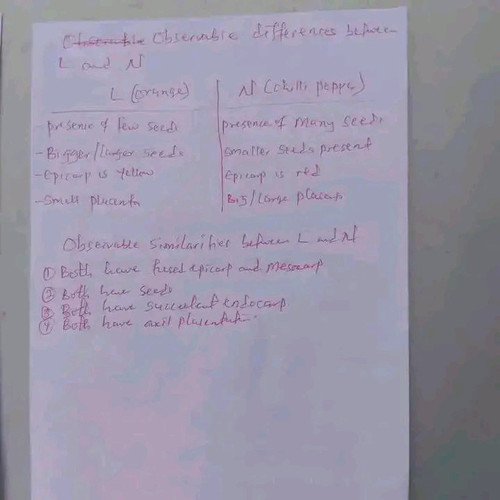 Observable Observable differences between
L and N
L (orange) N (chilli pepper)
presence of few seeds presence of many seeds
- Bigger/larger seeds smaller seeds present
- Epicarp is yellow Epicarp is red
- Small placenta Big/large placenta
Observable similarities between L and N
① Both have fused epicarp and mesocarp
② Both have seeds
③ Both have succulent endocarp
④ Both have axil placentation